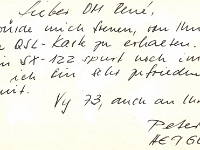 Lieber OM René,
würde mich freuen, von Ihn
QSL-Karte zu erhalten.
SX-122 spurt noch im
ich bin sehr zufrieden
mit.
Vy 73, auch an Ihr
Peter